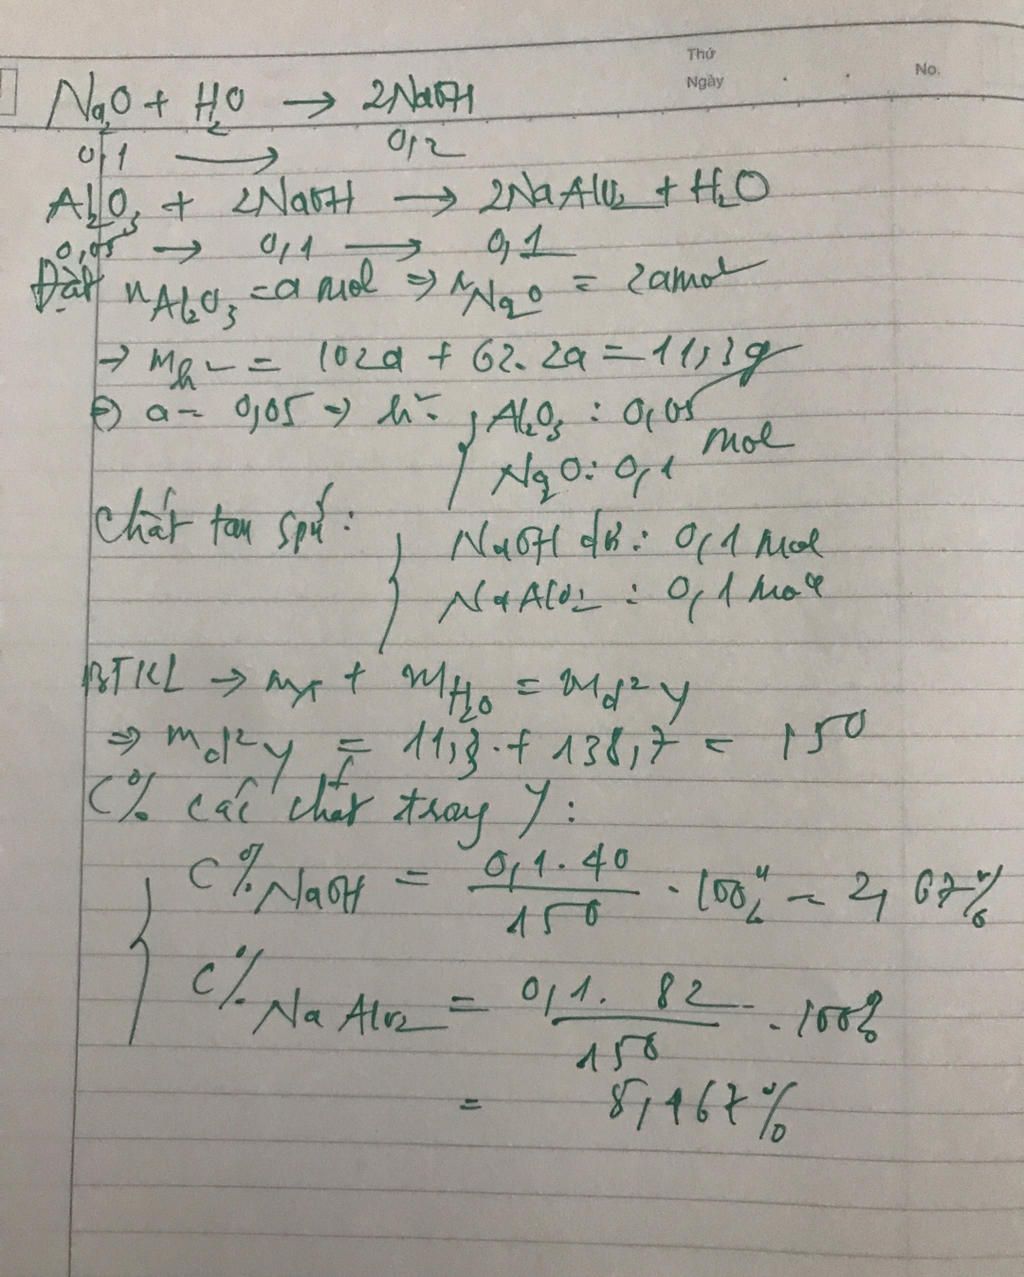 Thứ
Ngày
No.
Na2O + H2O → 2NaOH
0,1 → 0,2
Al2O3 + 2NaOH → 2NaAlO2 + H2O
0,05 → 0,1 → 0,1
Đặt nAl2O3 = a mol ⇒ nNa2O = 2a mol
→ mh² = 102a + 62.2a = 11,3g
⇔ a = 0,05 ⇒ h²: { Al2O3 : 0,05 mol
Na2O : 0,1
Chất tan spứ : { NaOH dư : 0,1 mol
NaAlO2 : 0,1 mol
BTKL → mX + mH2O = md² y
⇒ md² y = 11,3 + 138,7 = 150
C% các chất trong Y :
{ C% NaOH = 0,1.40 / 150 . 100% = 2,67%
C% NaAlO2 = 0,1. 82 / 150 . 100%
= 5,467%